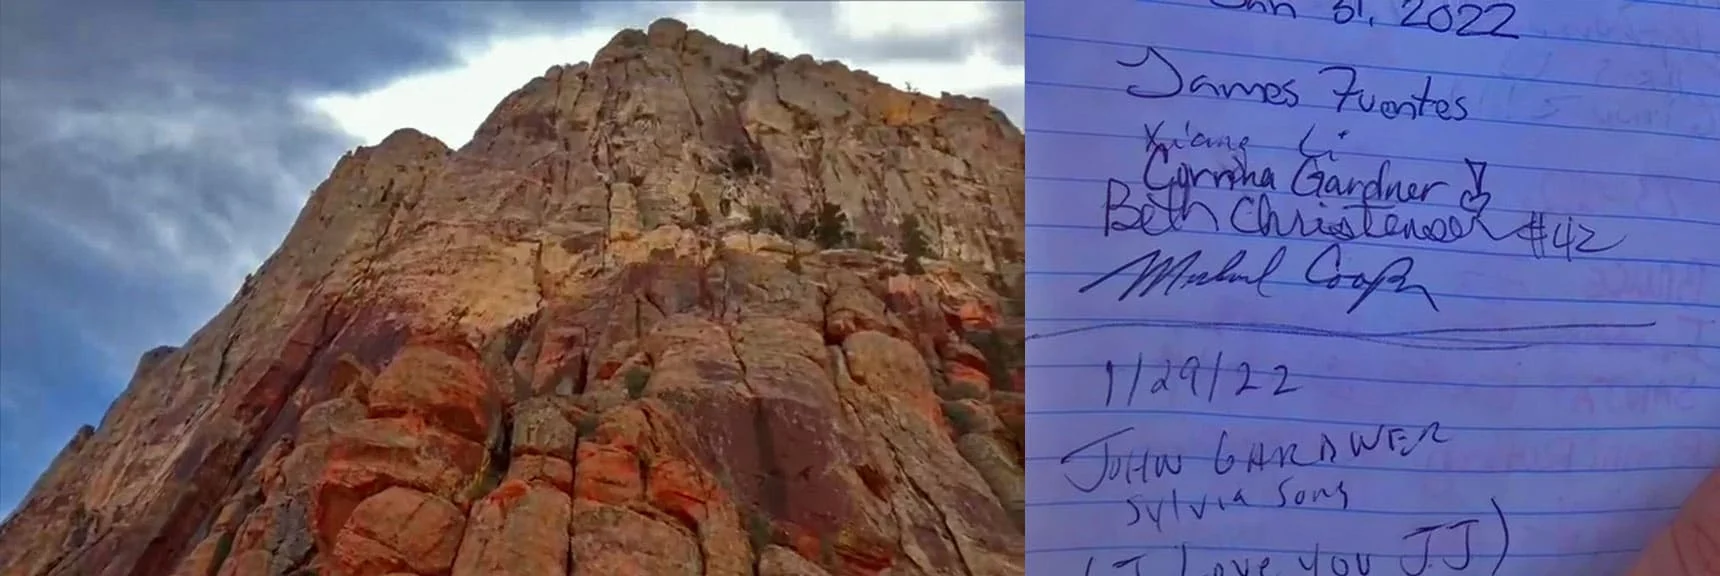 Jan 31, 2022
James Fuentes
Xiang Li
Gardner
Beth Christensen #42
Michael Coop
1/29/22
JOHN GARDNER
Sylvia Song
(I Love you JJ)